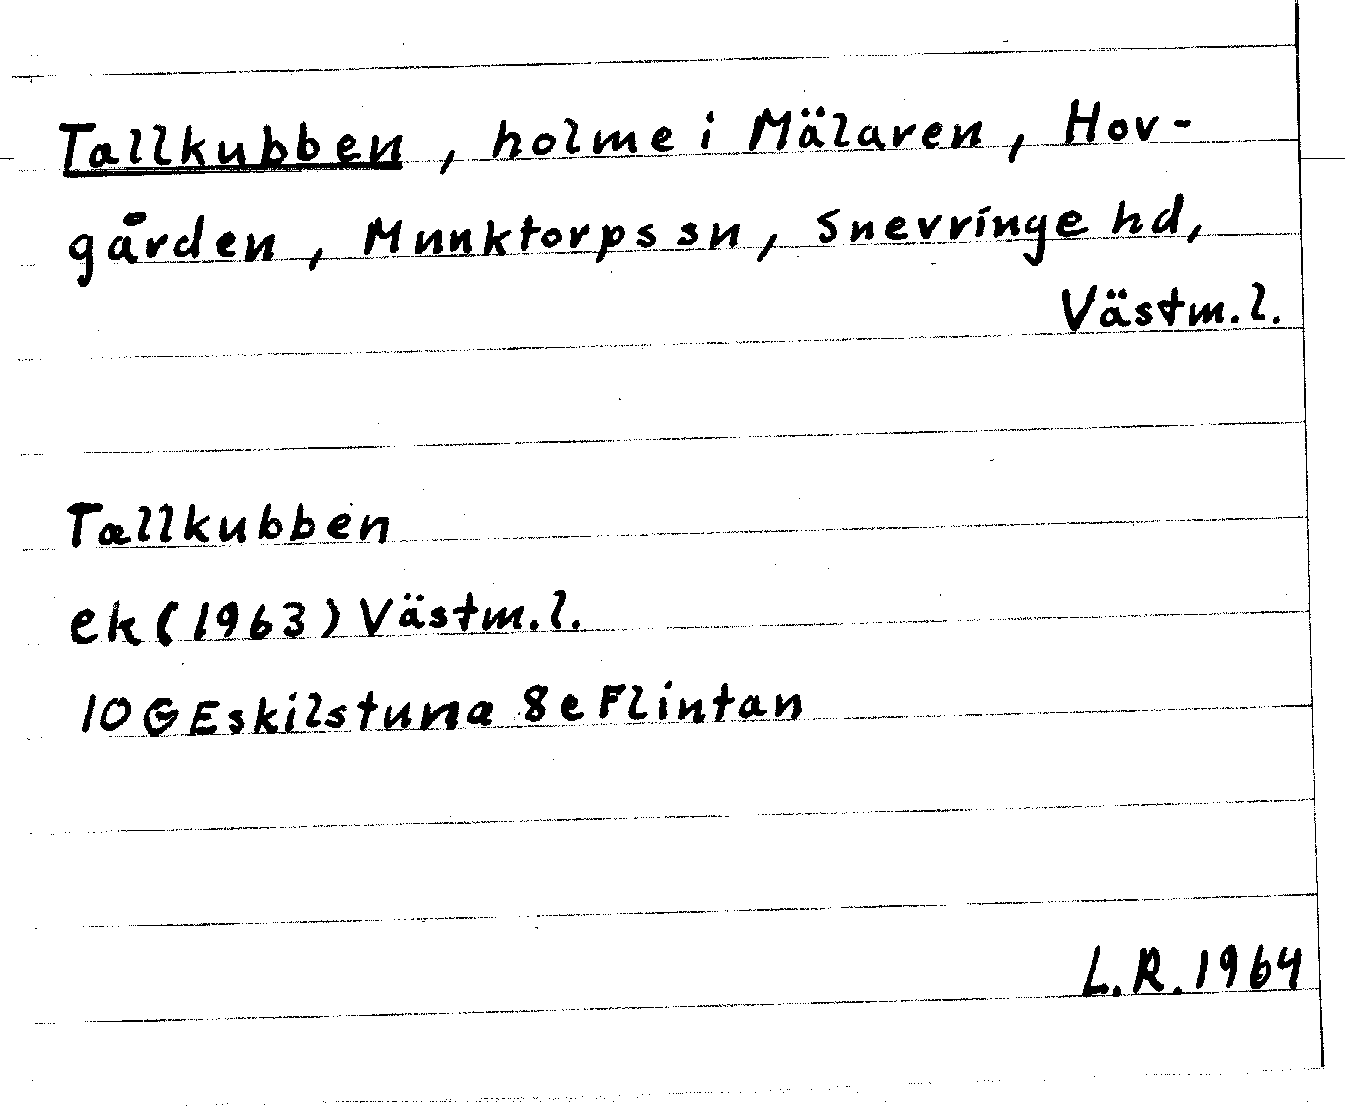 Tallkubben, holme i Mälaren, Hov-
gården, Munktorps sn, Snevringe hd,
Västm.l.
Tallkubben
ek (1963) Västm.l.
10 G Eskilstuna 8e Flintan
L.R. 1964